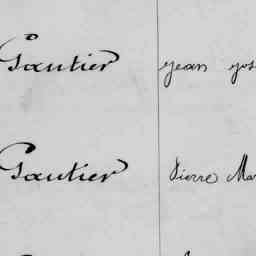 Gautier Jean Jos
Gautier Pierre Mar